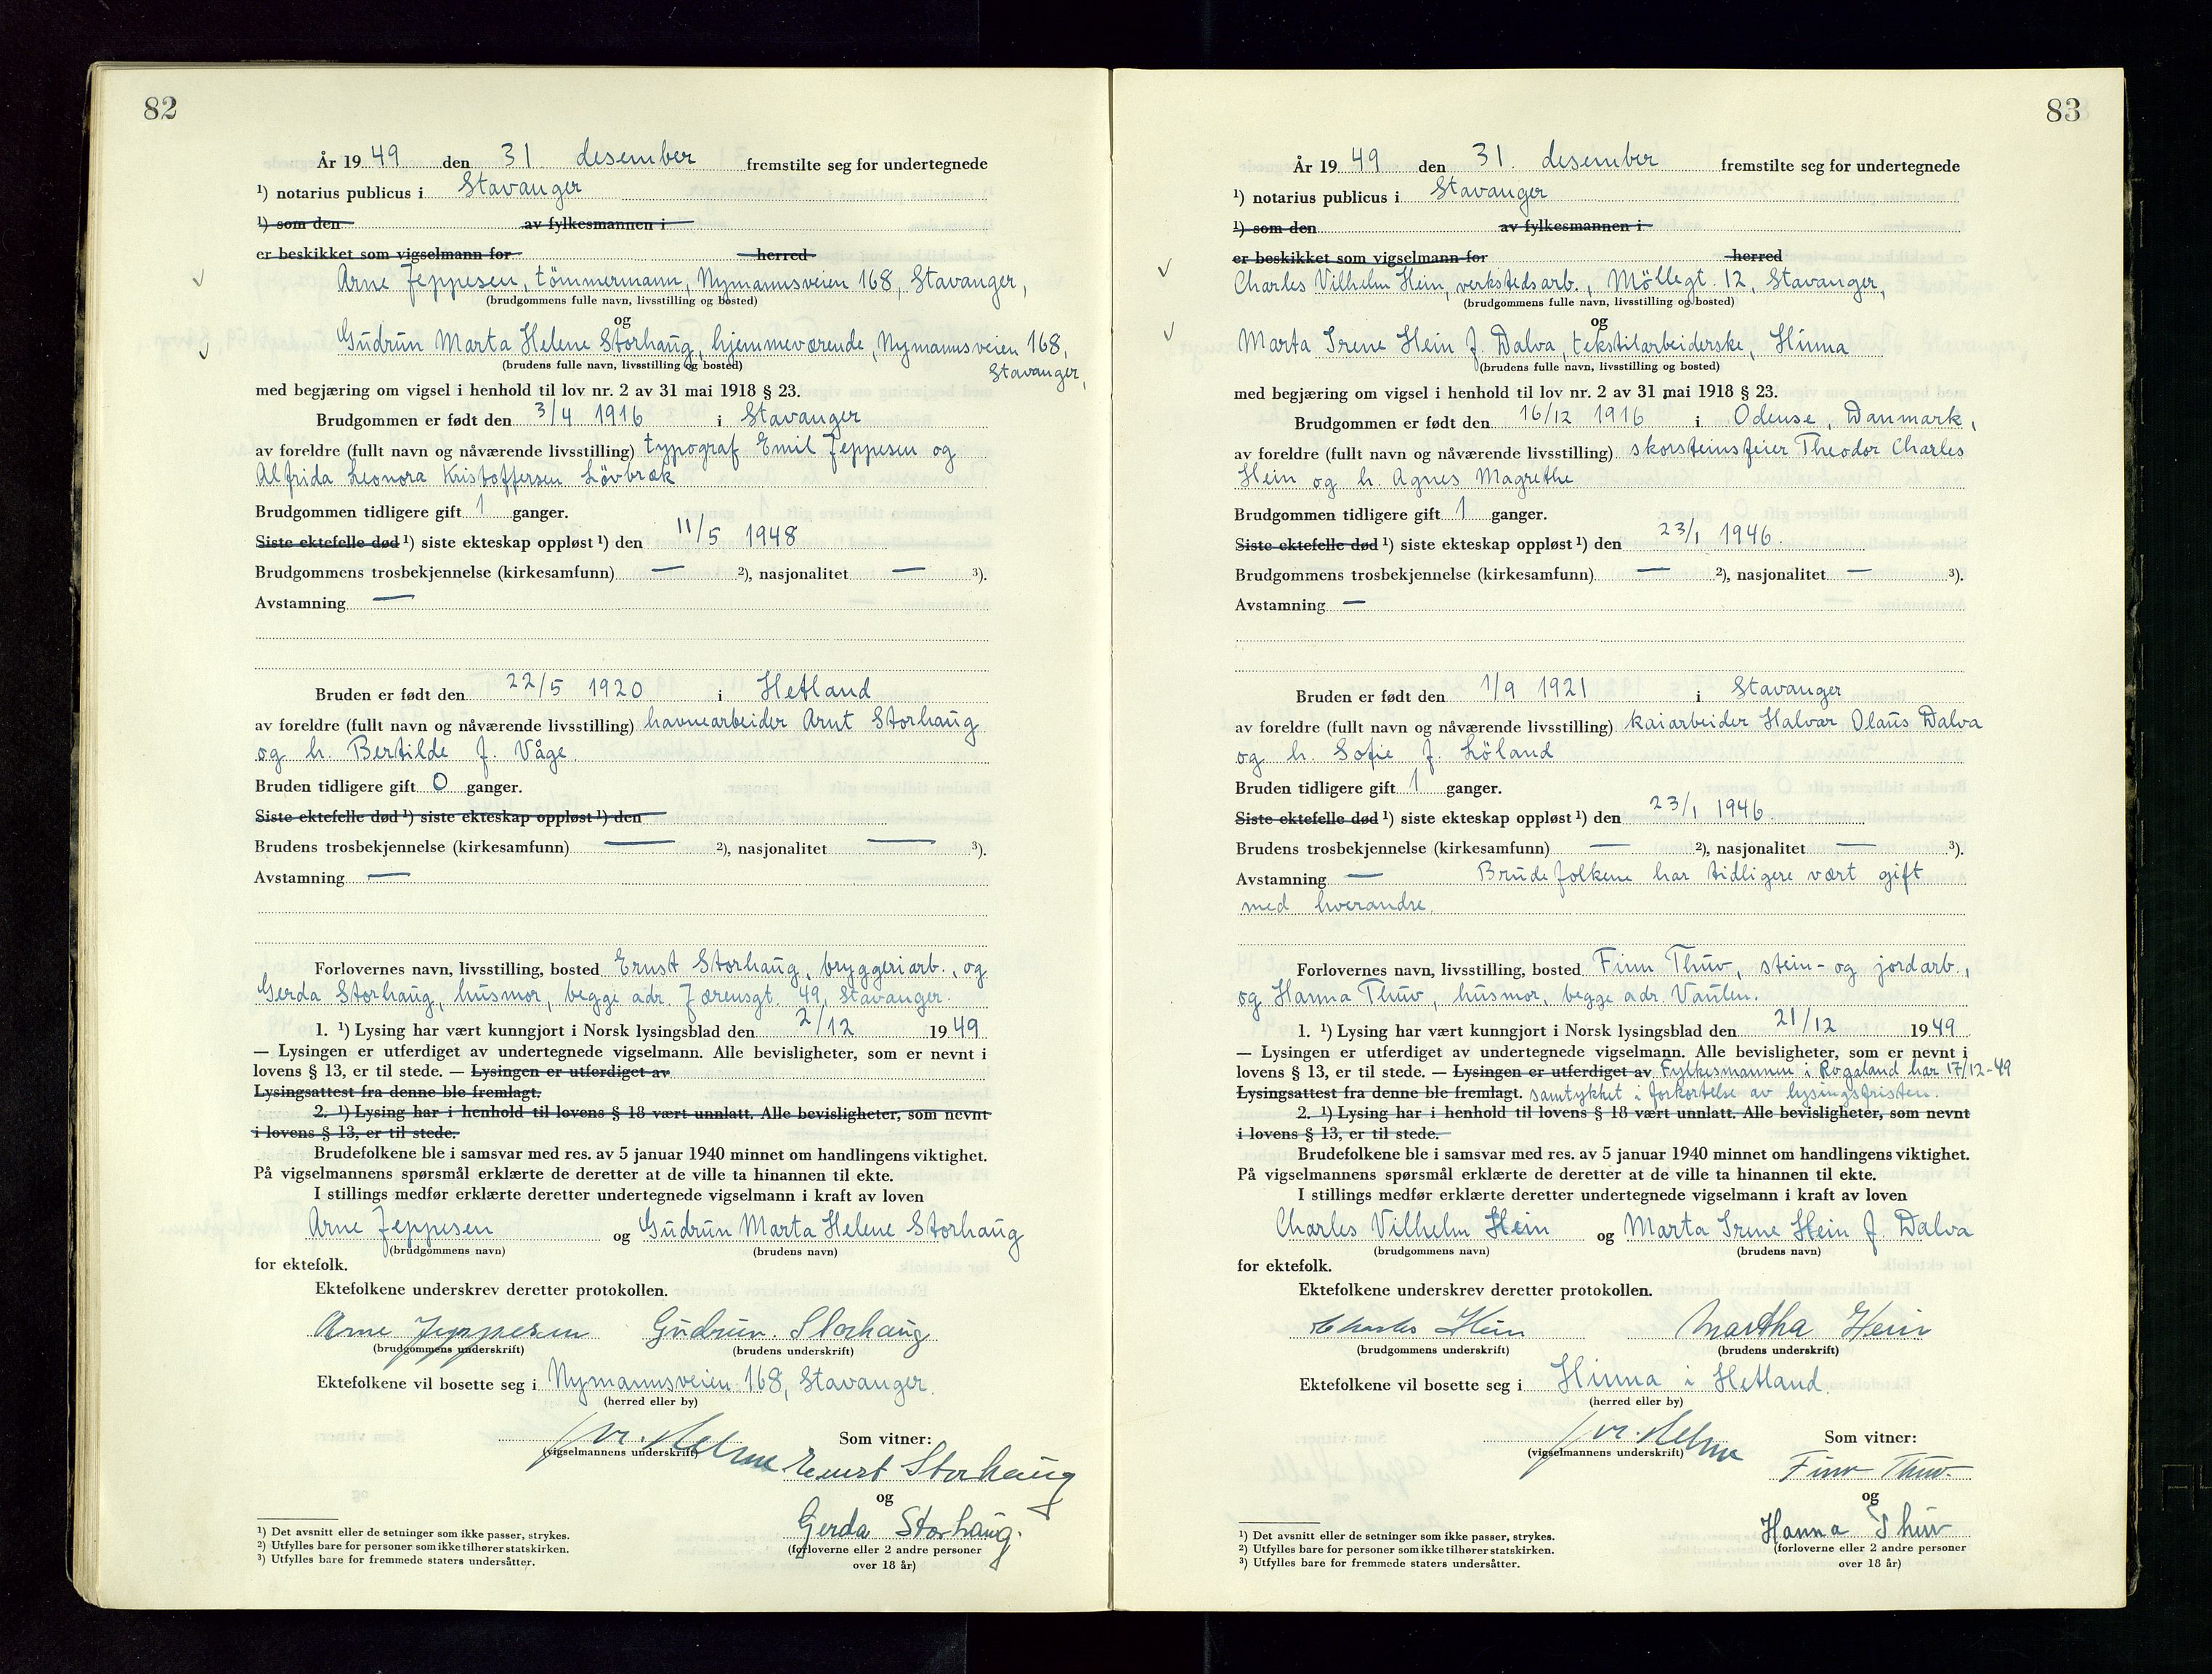 82
År 1949 den 31 desember fremstilte seg for undertegnede
¹) notarius publicus i Stavanger
¹) som den av fylkesmannen i
er beskikket som vigselmann for herred
Arne Jeppesen, tömmermann, Nymannsveien 168, Stavanger,
(brudgommens fulle navn, livsstilling og bosted)
og
Gudrun Marta Helene Storhaug, hjemmeværende, Nymannsveien 168,
(brudens fulle navn, livsstilling og bosted)
Stavanger,
med begjæring om vigsel i henhold til lov nr. 2 av 31 mai 1918 § 23.
Brudgommen er født den 3/4 1916 i Stavanger
av foreldre (fullt navn og nåværende livsstilling) typograf Emil Jeppesen og
Alfrida Leonora Kristoffersen Lövbræk
Brudgommen tidligere gift 1 ganger.
Siste ektefelle død ¹) siste ekteskap oppløst ¹) den 11/5 1948
Brudgommens trosbekjennelse (kirkesamfunn) — ²), nasjonalitet — ³).
Avstamning —
Bruden er født den 22/5 1920 i Hetland
av foreldre (fullt navn og nåværende livsstilling) havnearbeider Arnt Storhaug
og h. Bertilde f. Våge
Bruden tidligere gift 0 ganger.
Siste ektefelle død ¹) siste ekteskap oppløst ¹) den
Brudens trosbekjennelse (kirkesamfunn) — ²), nasjonalitet — ³).
Avstamning —
Forlovernes navn, livsstilling, bosted Ernst Storhaug, bryggeriarb., og
Gerda Storhaug, husmor, begge adr. Jærensgt. 49, Stavanger.
1. ¹) Lysing har vært kunngjort i Norsk lysingsblad den 2/12 1949
— Lysingen er utferdiget av undertegnede vigselmann. Alle bevisligheter, som er nevnt i
lovens § 13, er til stede. — Lysingen er utferdiget av
Lysingsattest fra denne ble fremlagt.
2. ¹) Lysing har i henhold til lovens § 18 vært unnlatt. Alle bevisligheter, som nevnt
i lovens § 13, er til stede.
Brudefolkene ble i samsvar med res. av 5 januar 1940 minnet om handlingens viktighet.
På vigselmannens spørsmål erklærte de deretter at de ville ta hinannen til ekte.
I stillings medfør erklærte deretter undertegnede vigselmann i kraft av loven
Arne Jeppesen og Gudrun Marta Helene Storhaug
(brudgommens navn) (brudens navn)
for ektefolk.
Ektefolkene underskrev deretter protokollen.
Arne Jeppesen Gudrun Storhaug
(brudgommens underskrift) (brudens underskrift)
Ektefolkene vil bosette seg i Nymannsveien 168, Stavanger.
(herred eller by)
Som vitner:
(vigselmannens underskrift)
Ernst Storhaug
og
Gerda Storhaug.
(forloverne eller 2 andre personer
over 18 år)
¹) Det avsnitt eller de setninger som ikke passer, strykes.
²) Utfylles bare for personer som ikke tilhører statskirken.
³) Utfylles bare for fremmede staters undersåtter.
83
År 1949 den 31. desember fremstilte seg for undertegnede
¹) notarius publicus i Stavanger
¹) som den av fylkesmannen i
er beskikket som vigselmann for herred
Charles Vilhelm Hein, verkstedsarb., Möllegt. 12, Stavanger,
(brudgommens fulle navn, livsstilling og bosted)
og
Marta Irene Hein f. Dalva, tekstilarbeiderske, Hinna
(brudens fulle navn, livsstilling og bosted)
med begjæring om vigsel i henhold til lov nr. 2 av 31 mai 1918 § 23.
Brudgommen er født den 16/12 1916 i Odense, Danmark,
av foreldre (fullt navn og nåværende livsstilling) skorsteinsfeier Theodor Charles
Hein og h. Agnes Magrethe
Brudgommen tidligere gift 1 ganger.
Siste ektefelle død ¹) siste ekteskap oppløst ¹) den 23/1 1946.
Brudgommens trosbekjennelse (kirkesamfunn) — ²), nasjonalitet — ³).
Avstamning —
Bruden er født den 1/9 1921 i Stavanger
av foreldre (fullt navn og nåværende livsstilling) kaiarbeider Halvar Olaus Dalva
og h. Sofie f. Löland
Bruden tidligere gift 1 ganger.
Siste ektefelle død ¹) siste ekteskap oppløst ¹) den 23/1 1946.
Brudens trosbekjennelse (kirkesamfunn) — ²), nasjonalitet — ³).
Avstamning — Brudefolkene har tidligere vært gift
med hverandre.
Forlovernes navn, livsstilling, bosted Finn Thuv, stein- og jordarb.,
og Hanna Thuv, husmor, begge adr. Vaulen.
1. ¹) Lysing har vært kunngjort i Norsk lysingsblad den 21/12 1949
— Lysingen er utferdiget av undertegnede vigselmann. Alle bevisligheter, som er nevnt i
lovens § 13, er til stede. — Lysingen er utferdiget av Fylkesmannen i Rogaland har 17/12-49
Lysingsattest fra denne ble fremlagt. samtykket i forkortelse av lysingsfristen.
2. ¹) Lysing har i henhold til lovens § 18 vært unnlatt. Alle bevisligheter, som nevnt
i lovens § 13, er til stede.
Brudefolkene ble i samsvar med res. av 5 januar 1940 minnet om handlingens viktighet.
På vigselmannens spørsmål erklærte de deretter at de ville ta hinannen til ekte.
I stillings medfør erklærte deretter undertegnede vigselmann i kraft av loven
Charles Vilhelm Hein og Marta Irene Hein f. Dalva
(brudgommens navn) (brudens navn)
for ektefolk.
Ektefolkene underskrev deretter protokollen.
Charles Hein Martha Hein
(brudgommens underskrift) (brudens underskrift)
Ektefolkene vil bosette seg i Hinna i Hetland.
(herred eller by)
Som vitner:
(vigselmannens underskrift)
Finn Thuv.
og
Hanna Thuv
(forloverne eller 2 andre personer
over 18 år)
¹) Det avsnitt eller de setninger som ikke passer, strykes.
²) Utfylles bare for personer som ikke tilhører statskirken.
³) Utfylles bare for fremmede staters undersåtter.